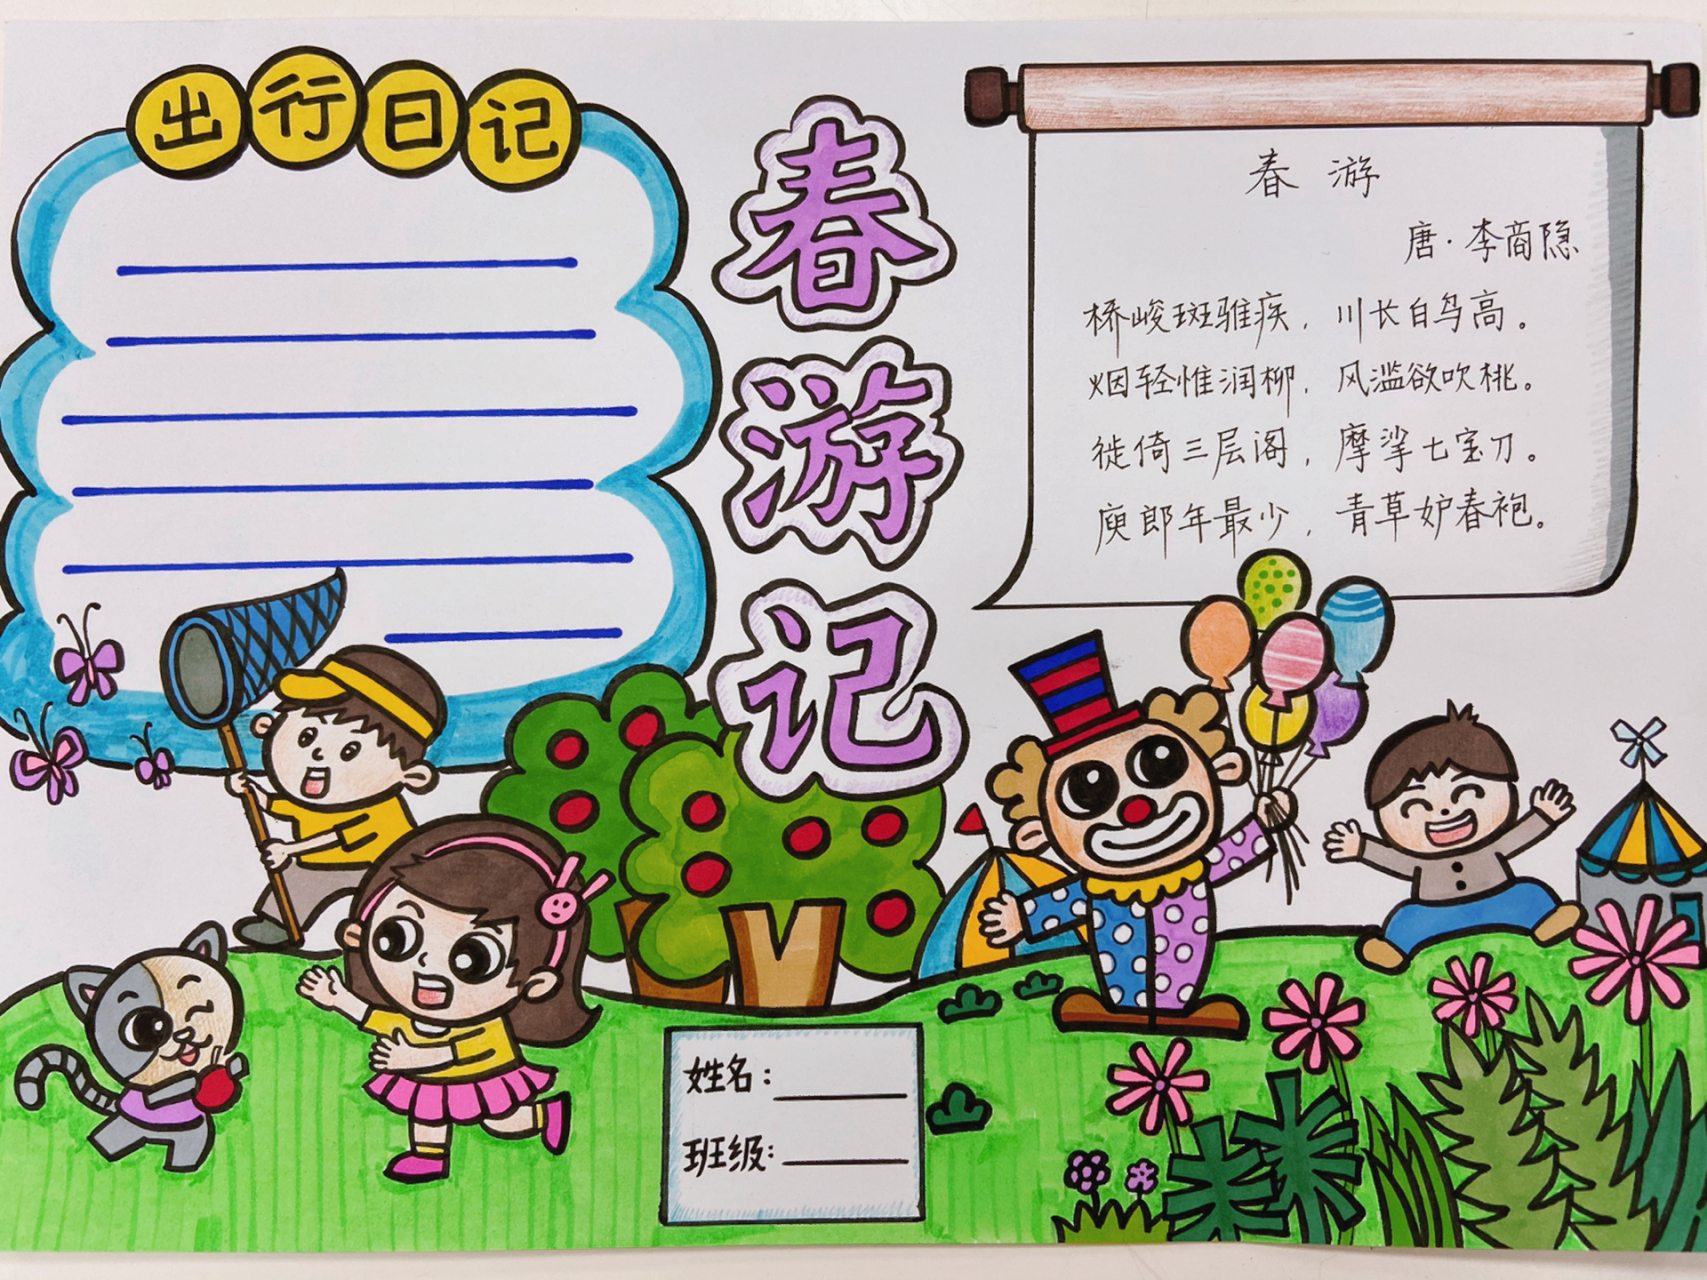 出行日记
春游记
春游
唐·李商隐
桥峻斑骓疾，川长白鸟高。
烟轻惟润柳，风滥欲吹桃。
徙倚三层阁，摩挲七宝刀。
庾郎年最少，青草妒春袍。
姓名：
班级：